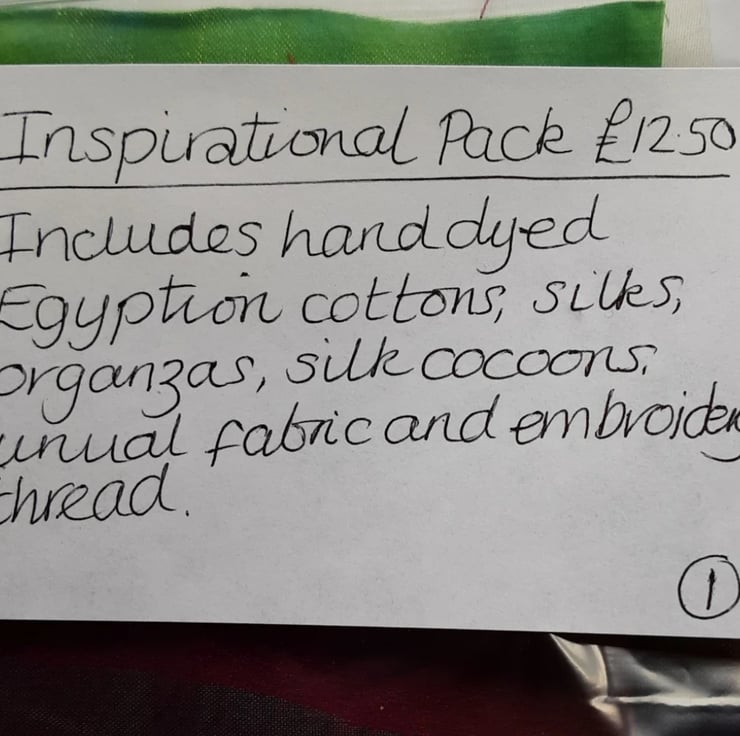 Inspirational Pack £12.50
Includes hand dyed
Egyption cottons, silks,
organzas, silk cocoons,
unual fabric and embroidery
thread.
1